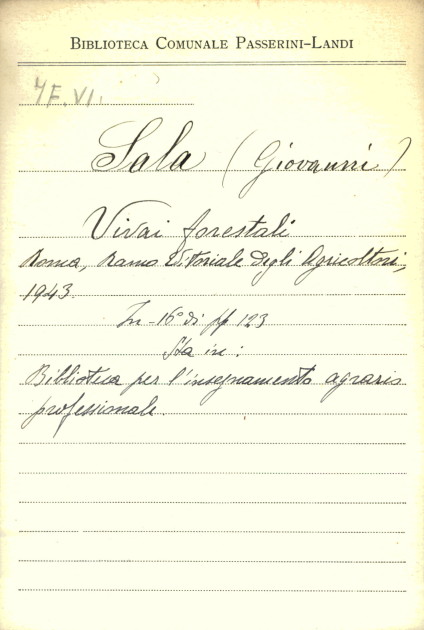 BIBLIOTECA COMUNALE PASSERINI-LANDI
4F.VI.
Sala (Giovanni)
Vivai forestali
Roma, Ramo Editoriale Degli Agricoltori,
1943.
In-16° di pp 123
Sta in:
Biblioteca per l'insegnamento agrario
professionale.